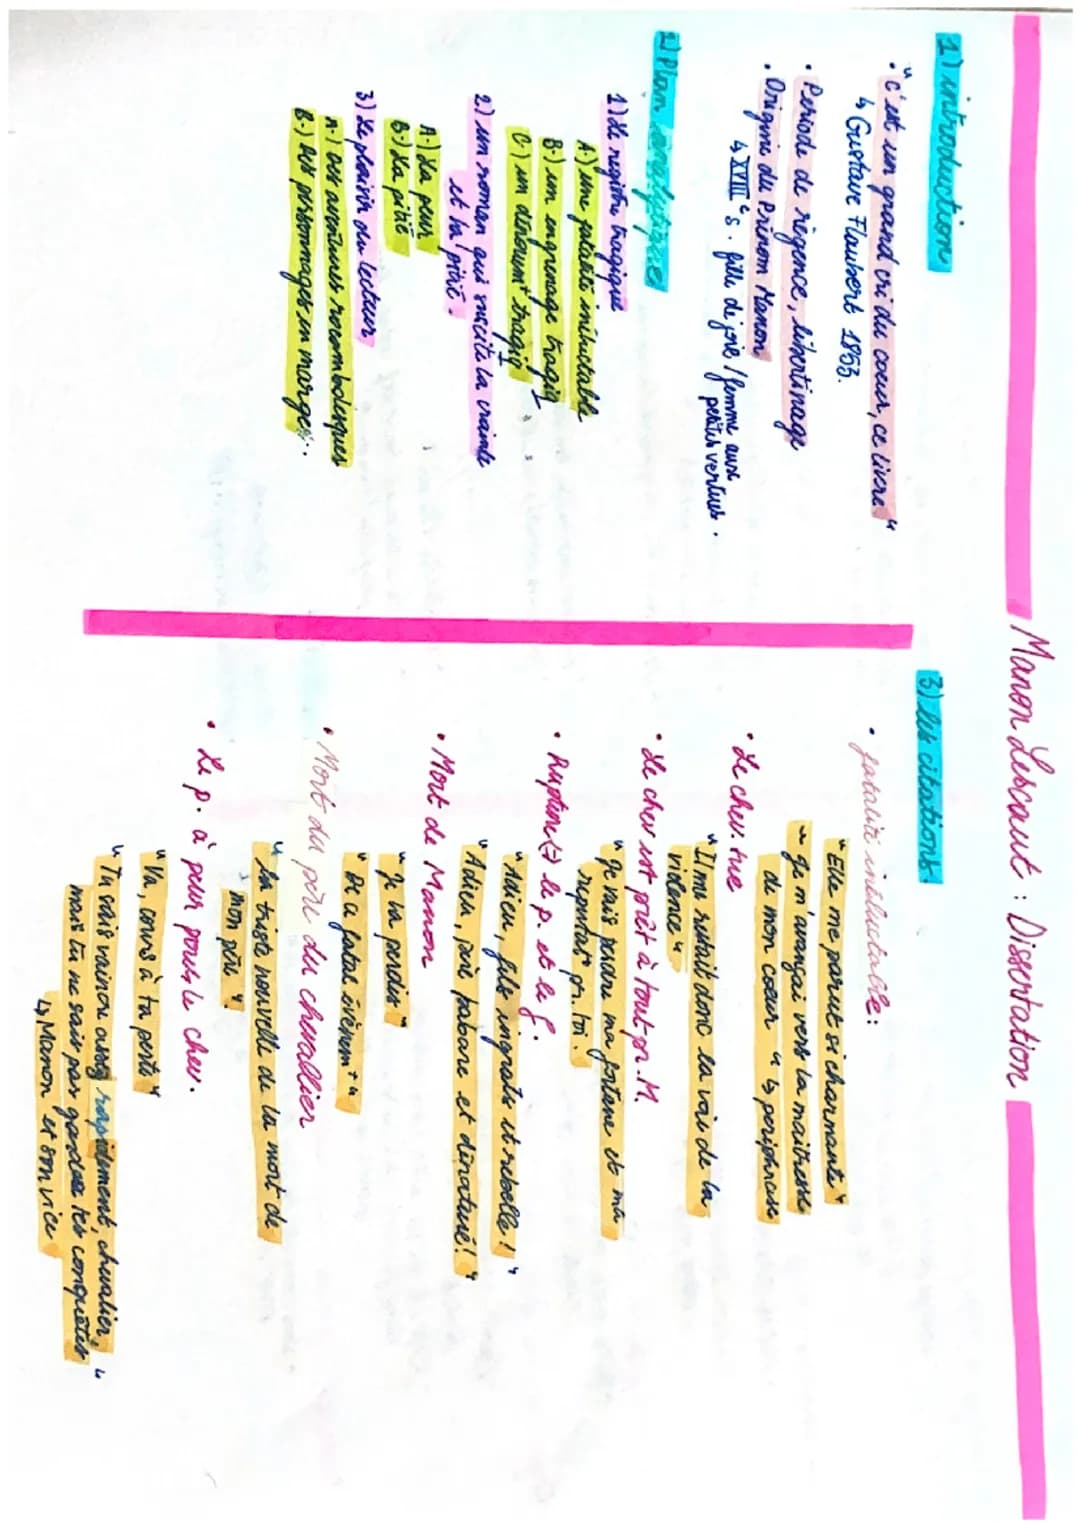 Manon Lescaut : Dissertation
1) introduction
• "C'est un grand cri du coeur, ce livre"
↳ Gustave Flaubert 1853.
• Periode de régence, libertinage
• Origine du Prénom Manon
↳ XVIIIe s. fille de joie / femme aux
petites vertues.
2) Plan analytique
1) Le registre tragique
A.) une fatalité inéluctable
B.) un engrenage tragiq
C.) un dénoum^t tragiq
2.) un roman qui suscite la crainte
et la pitié.
A.) La peur
B.) La pitié
3) Le plaisir du lecteur
A.) Des aventures rocambolesques
B.) Des personnages en marge...
3) les citations.
• fatalité inéluctable:
"Elle me parut si charmante"
"Je m'avançai vers la maîtresse
de mon coeur" ↳ periphrase
• Le chev. tue
"Il me restait donc la voie de la
violence"
• Le chev est prêt à tout pr. M.
"Je vais perdre ma fortune et ma
reputat° pr. toi.
• Rupture (≠) le p. et le f.
"Adieu, fils ingrats et rebelle!"
"Adieu, père barbare et dénaturé!"
• Mort de Manon
"Je la perdis"
"De ce fatal évènem^t"
• Mort du père du chevalier
"La triste nouvelle de la mort de
mon père".
• Le p. à peur pour le chev.
"Va, cours à ta perte"
"Tu sais vaincre assez rapidement, chevalier,
mais tu ne sais pas garder tes conquêtes"
↳ Manon et son vice